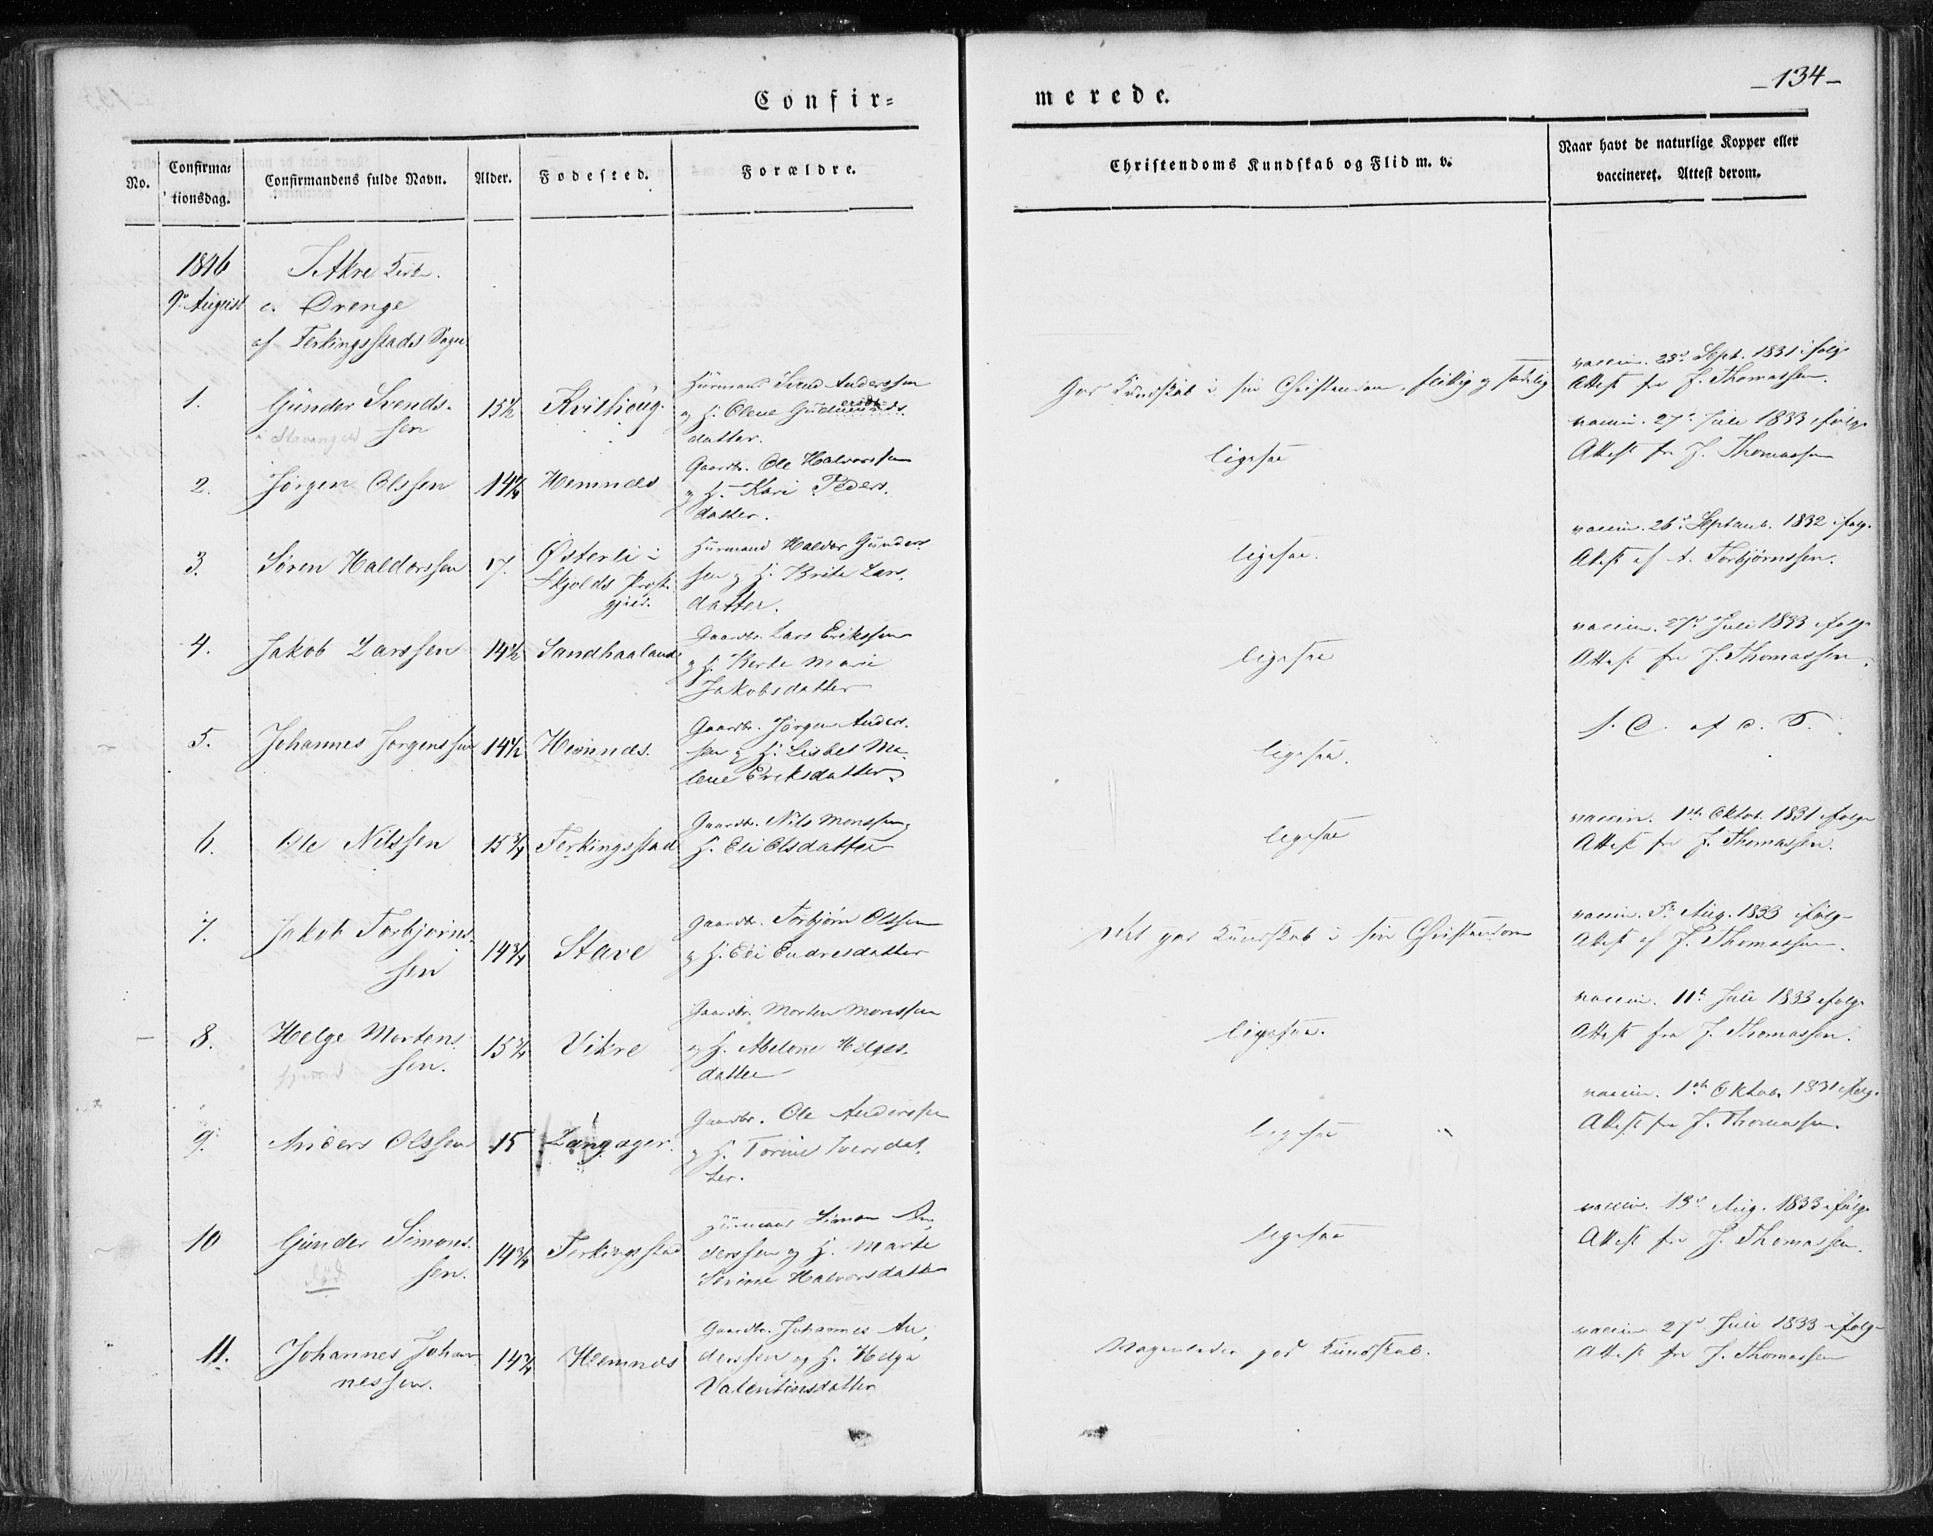 -134-
Confir=
merede.
No.
Confirma=
tionsdag.
Confirmandens fulde Navn.
Alder.
Fødested.
Forældre.
Christendoms Kundskab og Flid m. v.
Naar havt de naturlige Kopper eller
vaccineret. Attest derom.
1846
9de August
I Akre Kirke.
a. Drenge
af Ferkingsstads Sogn
1.
Gunder Svends-
sen
i Stavanger
15½
Kvilhoug.
Huusmand Svend Anderssen
og H. Olene Gudmunds
datter.
God Kundskab i sin Christendom, flittig og sædelig
vaccin. 23d Sept. 1831 ifølge
Attest fra J. Thomassen.
2.
Jørgen Olssen
14¾
Hemnes
Gaardbr. Ole Halvorssen
og H. Kari Peders-
datter.
ligesaa
vaccin. 27d Juli 1833 ifølge
Attest fra J. Thomassen
3.
Søren Haldorssen
17.
Østerli i
Skjolds Præste
gjeld.
Huusmand Haldor Gunders
sen og H. Brite Lars-
datter.
ligesaa.
vaccin. 26d Septemb. 1832 ifølg.
Attest af A. Torbjørnssen.
4.
Jakob Larssen
14½
Sandhaaland
Gaardbr. Lars Erikssen
og H. Berte Marie
Jakobsdatter
ligesaa
vaccin. 27d Juli 1833 ifølge
Attest fra J. Thomassen.
5.
Johannes Jørgenssen
14½
Hemnes.
Gaardbr. Jørgen Anders-
sen og H. Lisbet Ma-
lene Eriksdatter.
ligesaa.
6.
Ole Nilssen
15¾
Ferkingsstad
Gaardbr. Nils Monssen og
H. Eli Olsdatter
ligesaa
vaccin. 1ste Oktob. 1831 ifølge
Attest fra J. Thomassen.
7.
Jakob Torbjørns-
sen
14¾
Stave
Gaardbr. Torbjørn Olssen
og H. Eli Endresdatter
god Kundskab i sin Christendom
vaccin. 5te Aug. 1833 ifølge
Attest af J. Thomassen.
8.
Helge Mortens
sen.
15¾
Vikre
Gaardbr. Morten Monssen
og H. Abelone Helges-
datter
ligesaa.
vaccin. 11te Juli 1833 ifølge
Attest fra J. Thomassen.
9.
Anders Olssen
15
Langager.
Gaardbr. Ole Anderssen
og H. Torine Iversdat-
ter.
ligesaa
vaccin. 1ste Oktob. 1831 ifølge
Attest fra J. Thomassen.
10
Gunder Simons-
sen.
død
14¾
Ferkingsstad
Huusmand Simon An-
derssen og H. Marte
Serine Halvorsdatter
ligesaa
vaccin. 13d Aug. 1833 ifølge
Attest fra J. Thomassen.
11.
Johannes Johan-
nessen.
14¾
Hemnes
Gaardbr. Johannes An-
derssen og H. Helga
Valentinsdatter
god Kundskab.
vaccin. 27d Juli 1833 ifølge
Attest fra J. Thomassen